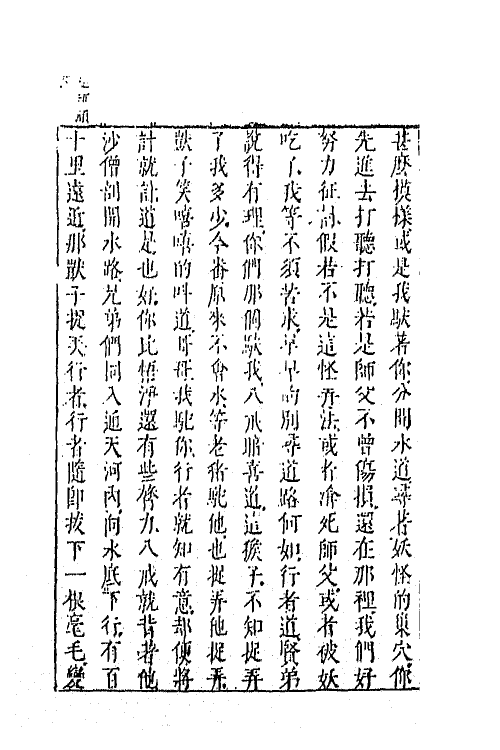 甚麽摸樣或是我馱着你分開水道尋着妖怪的巢穴你
先進去打聽打聽若是師父不曾傷損還在那裡我們好
努力征討假若不是這怪弄法或者渰死師父或者被妖
吃了我等不須苦求早早的别尋道路何如行者道賢弟
說得有理你們那個馱我八戒暗喜道這猴子不知捉弄
了我多少今番原來不會水等老猪馱他也捉弄他捉弄
獃子笑嘻嘻的呌道哥哥我馱你行者就知有意却便將
計就計道是也好你比悟淨還有些膂力八戒就背着他
沙僧剖開水路兄弟們同入通天河内向水底下行有百
十里遠近那獃子捉弄行者行者隨即拔下一根毫毛變